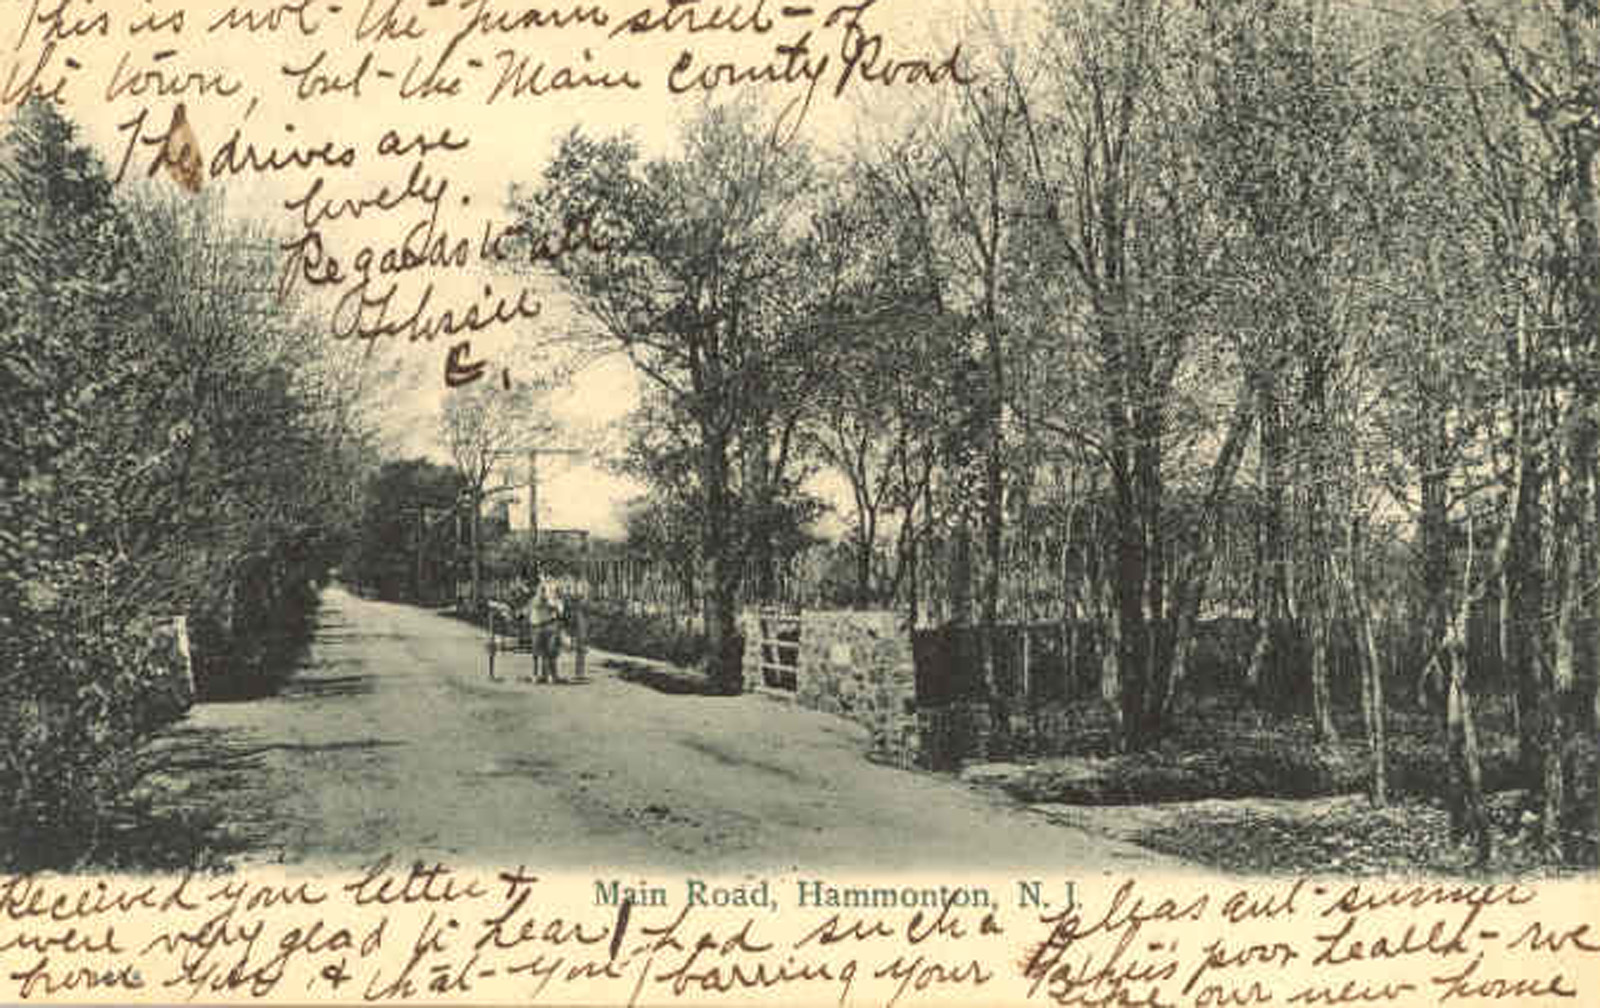 This is not the main street of
the town, but the Main County Road
The drives are
lovely.
Regards to all
E.
Main Road, Hammonton, N. J.
Received your letter & were very glad to hear from you & that you had such a pleasant summer barring your Father's poor health - we like our new home